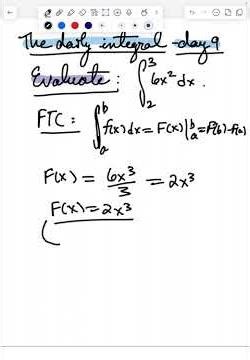 The daily integral - day 9
Evaluate: ∫₂³ 6x² dx.
FTC: ∫ₐᵇ f(x) dx = F(x)|ₐᵇ = F(b) - F(a)
F(x) = 6x³/3 = 2x³
F(x) = 2x³